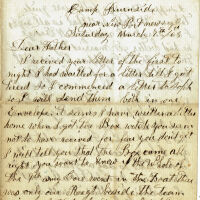 Camp Burnside
near New Port news
Saturday March 7th /63
Dear Father
I received your letter of the first to
night I had waited for a letter till I got
tired so I commenced a letter to Soph
so I will send them both in one
Envelope it seems I have written a letter
home when I got the Box which you seem
not to have received so far you want
I will tell you that the Box came all
right you want to know if the whole of
the 9th army Corps went in the Boat there
was only our Regt beside the team